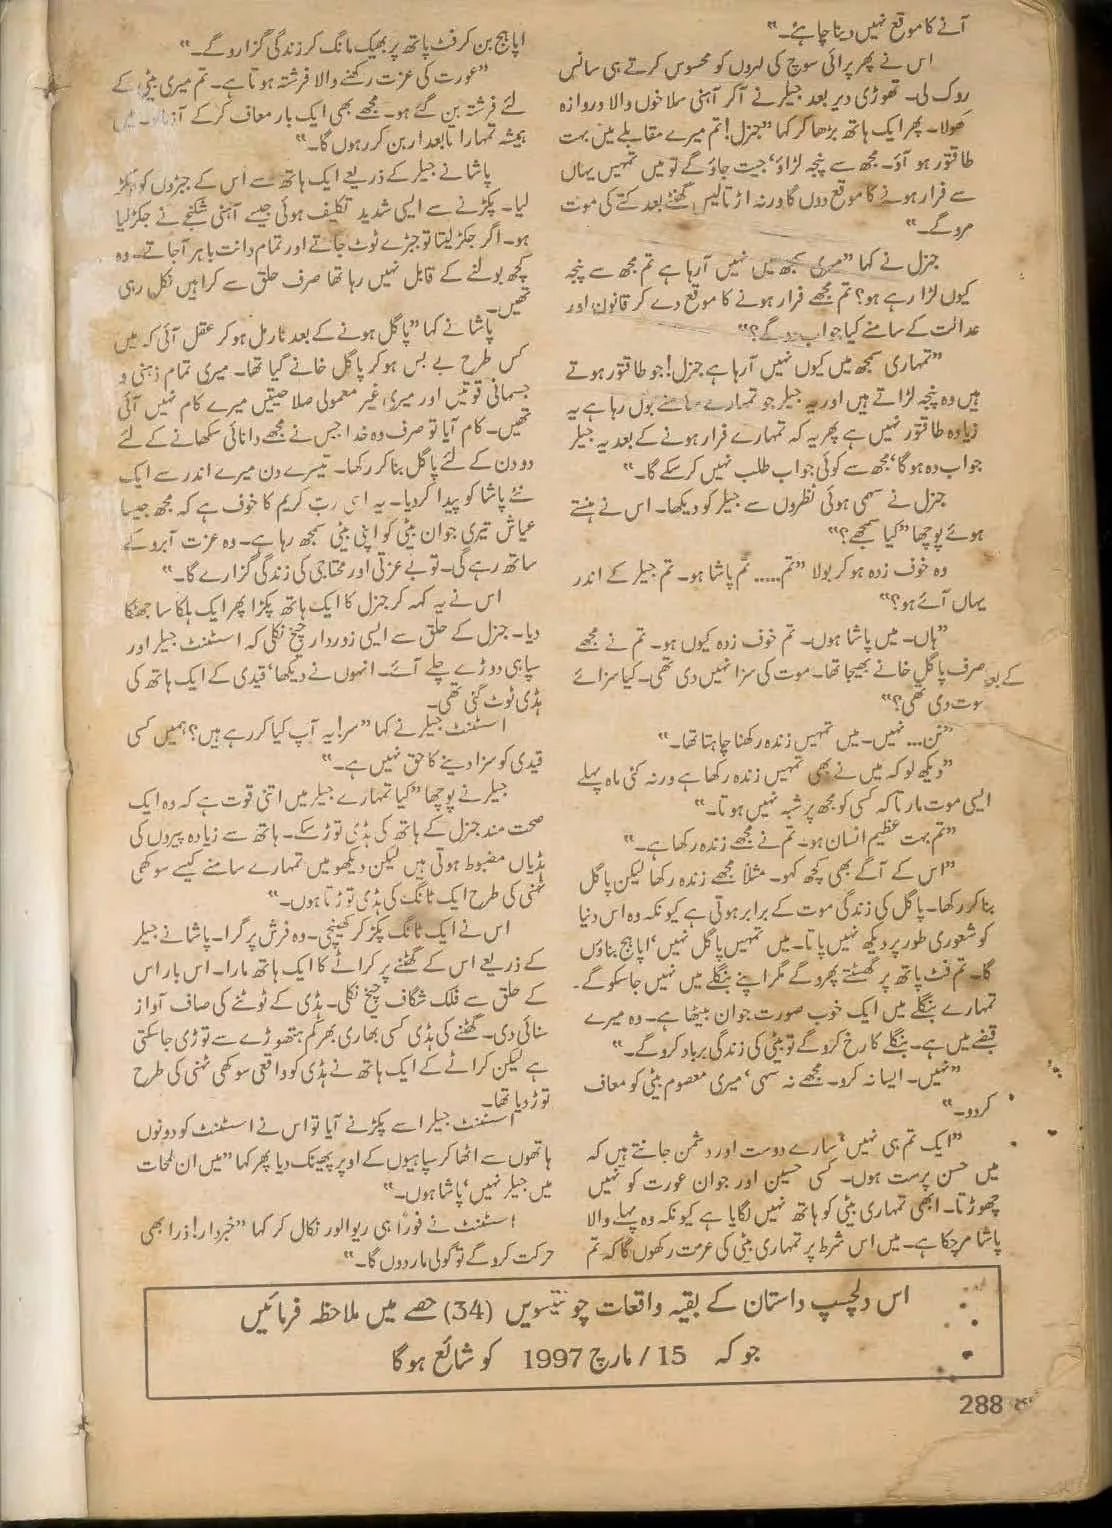 آنے کا موقع نہیں دینا چاہئے۔"
اس نے پھر پرائی سوچ کی لہروں کو محسوس کرتے ہی سانس
روک لی۔ تھوڑی دیر بعد جیلر نے آکر آہنی سلاخوں والا دروازہ
کھولا۔ پھر ایک ہاتھ بڑھا کر کہا "جنرل! تم میرے مقابلے میں بہت
طاقتور ہو آؤ۔ مجھ سے پنجہ لڑاؤ' جیت جاؤ گے تو میں تمہیں یہاں
سے فرار ہونے کا موقع دوں گا ورنہ اڑتالیس گھنٹے بعد کتے کی موت
مرو گے۔"
جنرل نے کہا "میری سمجھ میں نہیں آرہا ہے تم مجھ سے پنجہ
کیوں لڑا رہے ہو؟ تم مجھے فرار ہونے کا موقع دے کر قانون اور
عدالت کے سامنے کیا جواب دو گے؟"
"تمہاری سمجھ میں کیوں نہیں آرہا ہے جنرل! جو طاقتور ہوتے
ہیں وہ پنجہ لڑاتے ہیں اور یہ جیلر جو تمہارے سامنے بول رہا ہے یہ
زیادہ طاقتور نہیں ہے پھر یہ کہ تمہارے فرار ہونے کے بعد یہ جیلر
جواب دہ ہوگا' مجھ سے کوئی جواب طلب نہیں کر سکے گا۔"
جنرل نے سہمی ہوئی نظروں سے جیلر کو دیکھا۔ اس نے ہنستے
ہوئے پوچھا "کیا سمجھے؟"
وہ خوف زدہ ہو کر بولا "تم..... تم پاشا ہو۔ تم جیلر کے اندر
یہاں آئے ہو؟"
"ہاں۔ میں پاشا ہوں۔ تم خوف زدہ کیوں ہو۔ تم نے مجھے
صرف پاگل خانے بھیجا تھا۔ موت کی سزا نہیں دی تھی۔ کیا سزائے
موت دی تھی؟"
"نن... نہیں۔ میں تمہیں زندہ رکھنا چاہتا تھا۔"
"دیکھ لو کہ میں نے بھی تمہیں زندہ رکھا ہے ورنہ کئی ماہ پہلے
ایسی موت مارتا کہ کسی کو مجھ پر شبہ نہیں ہوتا۔"
"تم بہت عظیم انسان ہو۔ تم نے مجھے زندہ رکھا ہے۔"
"اس کے آگے بھی کچھ کہو۔ مثلاً مجھے زندہ رکھا لیکن پاگل
بنا کر رکھا۔ پاگل کی زندگی موت کے برابر ہوتی ہے کیونکہ وہ اس دنیا
کو شعوری طور پر دیکھ نہیں پاتا۔ میں تمہیں پاگل نہیں' اپاہج بناؤں
گا۔ تم فٹ پاتھ پر گھسٹتے پھرو گے مگر اپنے بنگلے میں نہیں جا سکو گے۔
تمہارے بنگلے میں ایک خوب صورت جوان بیٹھا ہے۔ وہ میرے
قبضے میں ہے۔ بنگلے کا رخ کرو گے تو بیٹی کی زندگی برباد کرو گے۔"
"نہیں۔ ایسا نہ کرو۔ مجھے نہ سہی' میری معصوم بیٹی کو معاف
کردو۔"
"ایک تم ہی نہیں' سارے دوست اور دشمن جانتے ہیں کہ
میں حسن پرست ہوں۔ کسی حسین اور جوان عورت کو نہیں
چھوڑتا۔ ابھی تمہاری بیٹی کو ہاتھ نہیں لگایا ہے کیونکہ وہ پہلے والا
پاشا مرچکا ہے۔ میں اس شرط پر تمہاری بیٹی کی عزت رکھوں گا کہ تم
اپاہج بن کر فٹ پاتھ پر بھیک مانگ کر زندگی گزارو گے۔"
"عورت کی عزت رکھنے والا فرشتہ ہوتا ہے۔ تم میری بیٹی کے
لئے فرشتہ بن گئے ہو۔ مجھے بھی ایک بار معاف کرکے آزمالو۔ میں
ہمیشہ تمہارا تابعدار بن کر رہوں گا۔"
پاشا نے جیلر کے ذریعے ایک ہاتھ سے اس کے جبڑوں کو پکڑ
لیا۔ پکڑنے سے ایسی شدید تکلیف ہوئی جیسے آہنی شکنجے نے جکڑ لیا
ہو۔ اگر جکڑ لیتا تو جبڑے ٹوٹ جاتے اور تمام دانت باہر آجاتے۔ وہ
کچھ بولنے کے قابل نہیں رہا تھا صرف حلق سے کراہیں نکل رہی
تھیں۔
پاشا نے کہا "پاگل ہونے کے بعد نارمل ہو کر عقل آئی کہ میں
کس طرح بے بس ہو کر پاگل خانے گیا تھا۔ میری تمام ذہنی و
جسمانی قوتیں اور میری غیر معمولی صلاحیتیں میرے کام نہیں آئی
تھیں۔ کام آیا تو صرف وہ خدا جس نے مجھے دانائی سکھانے کے لئے
دو دن کے لئے پاگل بنا کر رکھا۔ تیسرے دن میرے اندر سے ایک
نئے پاشا کو پیدا کردیا۔ یہ اسی رب کریم کا خوف ہے کہ مجھ جیسا
عیاش تیری جوان بیٹی کو اپنی بیٹی سمجھ رہا ہے۔ وہ عزت آبرو کے
ساتھ رہے گی۔ تو بے عزتی اور محتاجی کی زندگی گزارے گا۔"
اس نے یہ کہہ کر جنرل کا ایک ہاتھ پکڑا پھر ایک ہلکا سا جھٹکا
دیا۔ جنرل کے حلق سے ایسی زوردار چیخ نکلی کہ اسسٹنٹ جیلر اور
سپاہی دوڑے چلے آئے۔ انہوں نے دیکھا' قیدی کے ایک ہاتھ کی
ہڈی ٹوٹ گئی تھی۔
اسسٹنٹ جیلر نے کہا "سر! یہ آپ کیا کررہے ہیں؟ ہمیں کسی
قیدی کو سزا دینے کا حق نہیں ہے۔"
جیلر نے پوچھا "کیا تمہارے جیلر میں اتنی قوت ہے کہ وہ ایک
صحت مند جنرل کے ہاتھ کی ہڈی توڑ سکے۔ ہاتھ سے زیادہ پیروں کی
ہڈیاں مضبوط ہوتی ہیں لیکن دیکھو میں تمہارے سامنے کیسے سوکھی
ٹہنی کی طرح ایک ٹانگ کی ہڈی توڑتا ہوں۔"
اس نے ایک ٹانگ پکڑ کر کھینچی۔ وہ فرش پر گرا۔ پاشا نے جیلر
کے ذریعے اس کے گھٹنے پر کراٹے کا ایک ہاتھ مارا۔ اس بار اس
کے حلق سے فلک شگاف چیخ نکلی۔ ہڈی کے ٹوٹنے کی صاف آواز
سنائی دی۔ گھٹنے کی ہڈی کسی بھاری بھرکم ہتھوڑے سے توڑی جاسکتی
ہے لیکن کراٹے کے ایک ہاتھ نے ہڈی کو واقعی سوکھی ٹہنی کی طرح
توڑ دیا تھا۔
اسسٹنٹ جیلر اسے پکڑنے آیا تو اس نے اسسٹنٹ کو دونوں
ہاتھوں سے اٹھا کر سپاہیوں کے اوپر پھینک دیا پھر کہا "میں ان لمحات
میں جیلر نہیں' پاشا ہوں۔"
اسسٹنٹ نے فوراً ہی ریوالور نکال کر کہا "خبردار! ذرا بھی
حرکت کرو گے تو گولی مار دوں گا۔"
اس دلچسپ داستان کے بقیہ واقعات چونتیسویں (34) حصے میں ملاحظہ فرمائیں
جو کہ 15 / مارچ 1997 کو شائع ہوگا
288